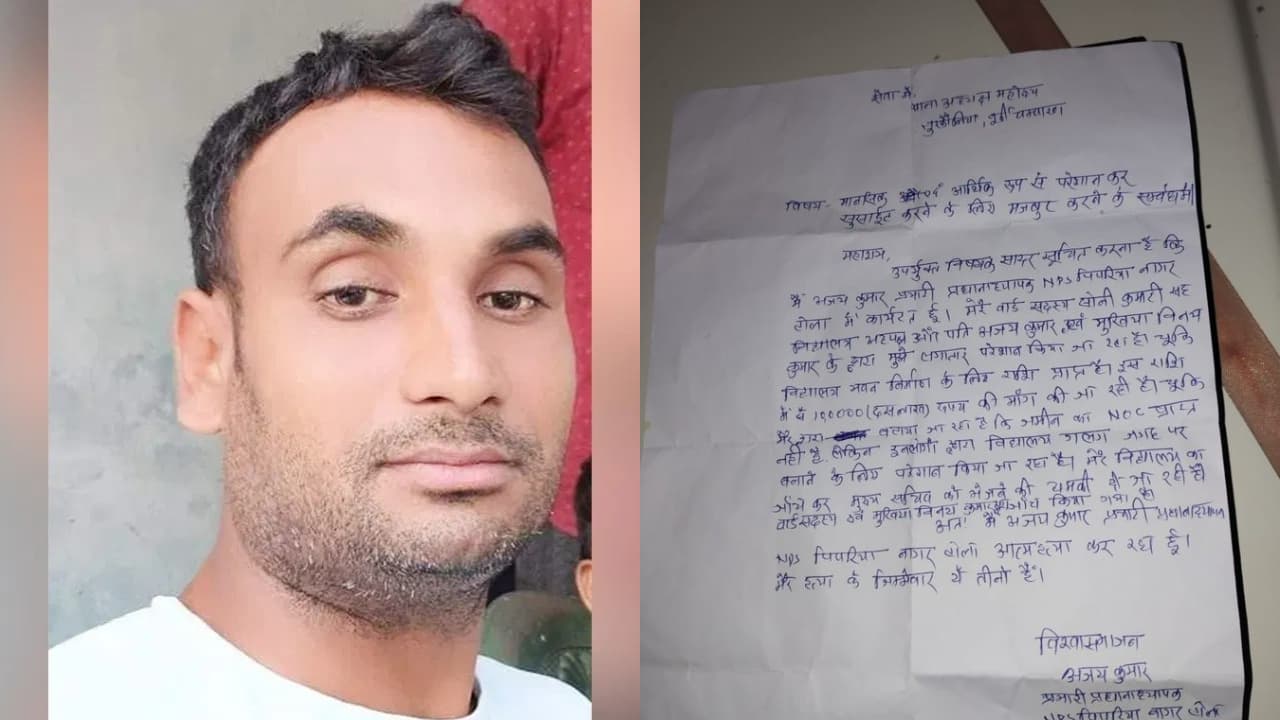 सेवा में,
थाना अध्यक्ष महोदय
तुरकौलिया, पूर्वी चम्पारण
विषय- मानसिक एवं आर्थिक रूप से परेशान कर
सुसाईट करने के लिए मजबुर करने के सम्बंध में।
महाशय,
उपर्युक्त विषयक सादर सूचित करता है कि
मैं अजय कुमार प्रभारी प्रधानाध्यापक NPS पिपरिया नागर
टोला में कार्यरत हूँ। मेरे वार्ड सदस्य सोनी कुमारी सह
विद्यालय अध्यक्ष पति अजय कुमार एवं मुखिया विनय
कुमार के द्वारा मुझे लगातार परेशान किया जा रहा है। चूकि
विद्यालय भवन निर्माण के लिए राशि प्राप्त है। इस राशि
में से 1,00000 (दस लाख) रूपय की माँग की जा रही है। चूकि
मेरे द्वारा बताया जा रहा है कि जमीन का NOC प्राप्त
नहीं है लेकिन इनलोगों द्वारा विद्यालय गलत जगह पर
बनाने के लिए परेशान किया जा रहा है। मेरे विद्यालय का
जाँच कर मुख्य सचिव को भेजने की धमकी दी जा रही है
वार्ड सदस्य एवं मुखिया विनय कुमार जाँच किया गया है।
अतः मैं अजय कुमार प्रभारी प्रधानाध्यापक
NPS पिपरिया नागर टोला आत्महत्या कर रहा हूँ।
मेरे हत्या के जिम्मेवार ये तीनो हैं।
विश्वासभाजन
अजय कुमार
प्रभारी प्रधानाध्यापक
NPS पिपरिया नागर टोला